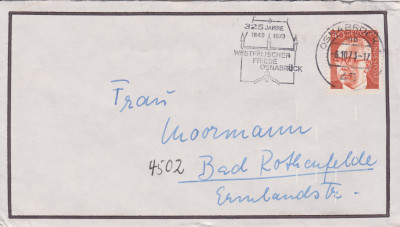 325 JAHRE
1648 1973
WESTFÄLISCHER
FRIEDE
OSNABRÜCK
OSNABRÜCK
Frau
Moormann
4502 Bad Rothenfelde
Ermlandstr.